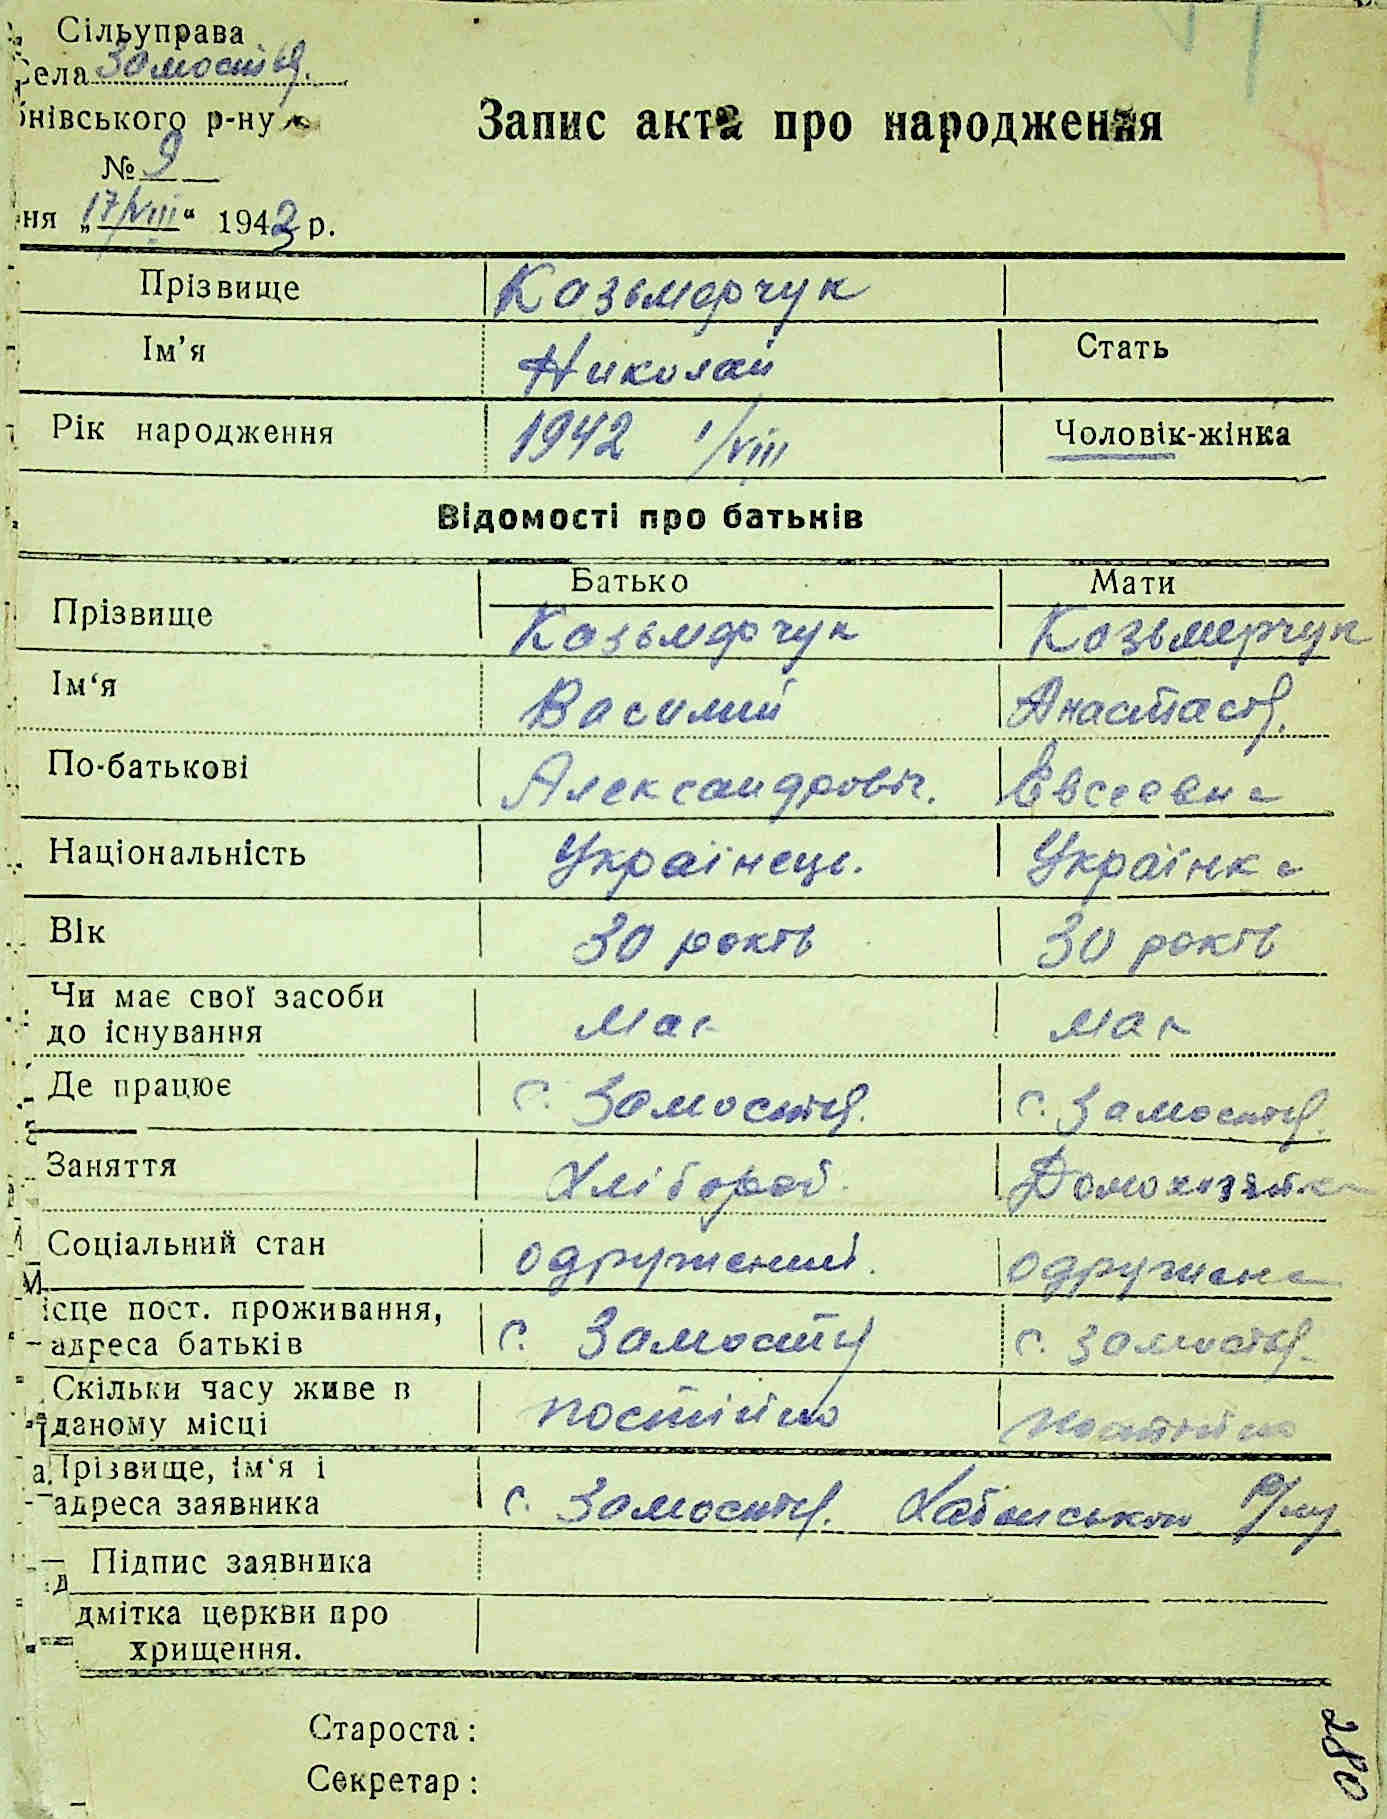 Сільуправа
Села Замостья.
бнівського р-ну
№ 9
ня „17/VIII“ 1942 р.
Запис акта про народження
Прізвище Козьмерчук
Ім’я Николай Стать
Рік народження 1942 1/VIII Чоловік-жінка
Відомості про батьків
Батько Мати
Прізвище Козьмерчук Козьмерчук
Ім‘я Василий Анастася.
По-батькові Александровіч. Евсеевна
Національність Українець. Українка
Вік 30 років 30 років
Чи має свої засоби
до існування має має
Де працює с. Замостья. с. Замостья.
Заняття Хлібороб. Домохозяйка
Соціальний стан одружений. одружена
Місце пост. проживання,
адреса батьків с. Замостя с. Замостья.
Скільки часу живе в
даному місці постійно постійно
Прізвище, ім‘я і
адреса заявника с. Замостья. р/ну
Підпис заявника
дмітка церкви про
хрищення.
Староста:
Секретар:
280